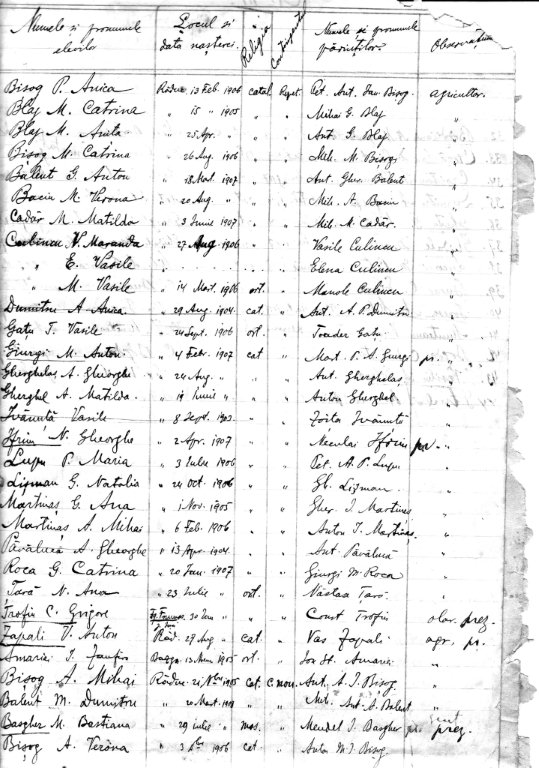 Numele și pronumele elevilor Locul și data nașterei Religia Numele și pronumele părinților Observațiuni
Bisog P. Anica Rădue. 13 Feb. 1906 catol Repet. Pet. Ant. Bisog. agricultor.
Blaj M. Catrina " 15 " 1905 " " Mihai G. Blaj "
Blaj M. Anita " 25 Apr. " " " Ant. G. Blaj "
Bisog M. Catrina " 26 Aug. 1906 " " Mih. M. Bisog "
Balent G. Anton " 18 Mart. 1907 " " Ant. Gher. Balent "
Baciu M. Verona " 20 Aug. " " " Mih. A. Baciu "
Cadăr M. Matilda " 3 Iunie 1907 " " Mih. A. Cadăr. "
Culincu V. Maranda " 27 Aug 1906 " " Vasile Culincu "
" E. Vasile Elena Culincu "
" M. Vasile " 14 Mart. 1906 ort. " Manole Culincu "
Dumitru A. Anica " 29 Aug. 1904. cat. " Ant. A. P. Dumitru "
Gatu T. Vasile " 24 Sept. 1906 ort. " Toader Gatu "
Giurgi M. Anton " 4 Febr. 1907 cat " Mart. P. A. Giurgi pr. "
Gherghelas A. Gheorghe " 24 Aug. " " " Ant. Gherghelas "
Gherghel A. Matilda " 14 Iunie " " " Anton Gherghel "
Ivănuță Vasile " 8 Sept. 1903. " " Ivănuță "
Ifrim N. Gheorghe " 2 Apr. 1907 " " Neculai Ifrim pr. "
Lupu P. Maria " 3 Iulie 1906 " " Pet. A. P. Lupu "
Lipman G. Natalia " 24 Oct. 1906 " " Gh. Lipman "
Mărtinaș G. Ana " 1 Nov. 1905 " " Gher. I. Martinas "
Martinaș A. Mihai " 6 Feb. 1906 " " Anton I. Martinas "
Păvălucă A. Gheorghe " 13 Apr. 1904. " " Ant. Păvălucă "
Roca G. Catrina " 20 Ian. 1907 " " Giurgi M. Roca "
Țară N. Ana " 23 Iulie " ort. "
Trofin C. Grigore 30 Ian " " " Const Trofin olar. prez.
Zapali V. Anton Răd. 29 Aug " cat. " Vas Zapali agr. pr.
Amariei I. 1905 ort. " Ion St. Amariei "
Bisog A. Mihai Rădue. 1905 cat. Ant. A. I. Bisog "
Balent M. Dumitru " 20 Mart. Mih. Ant. A. Balent "
Bargher M. Bastiana " 29 iulie " mos. " Mendel I. Bargher prez.
Bisog A. Verona " 1906 cat. " Anton M. I. Bisog "